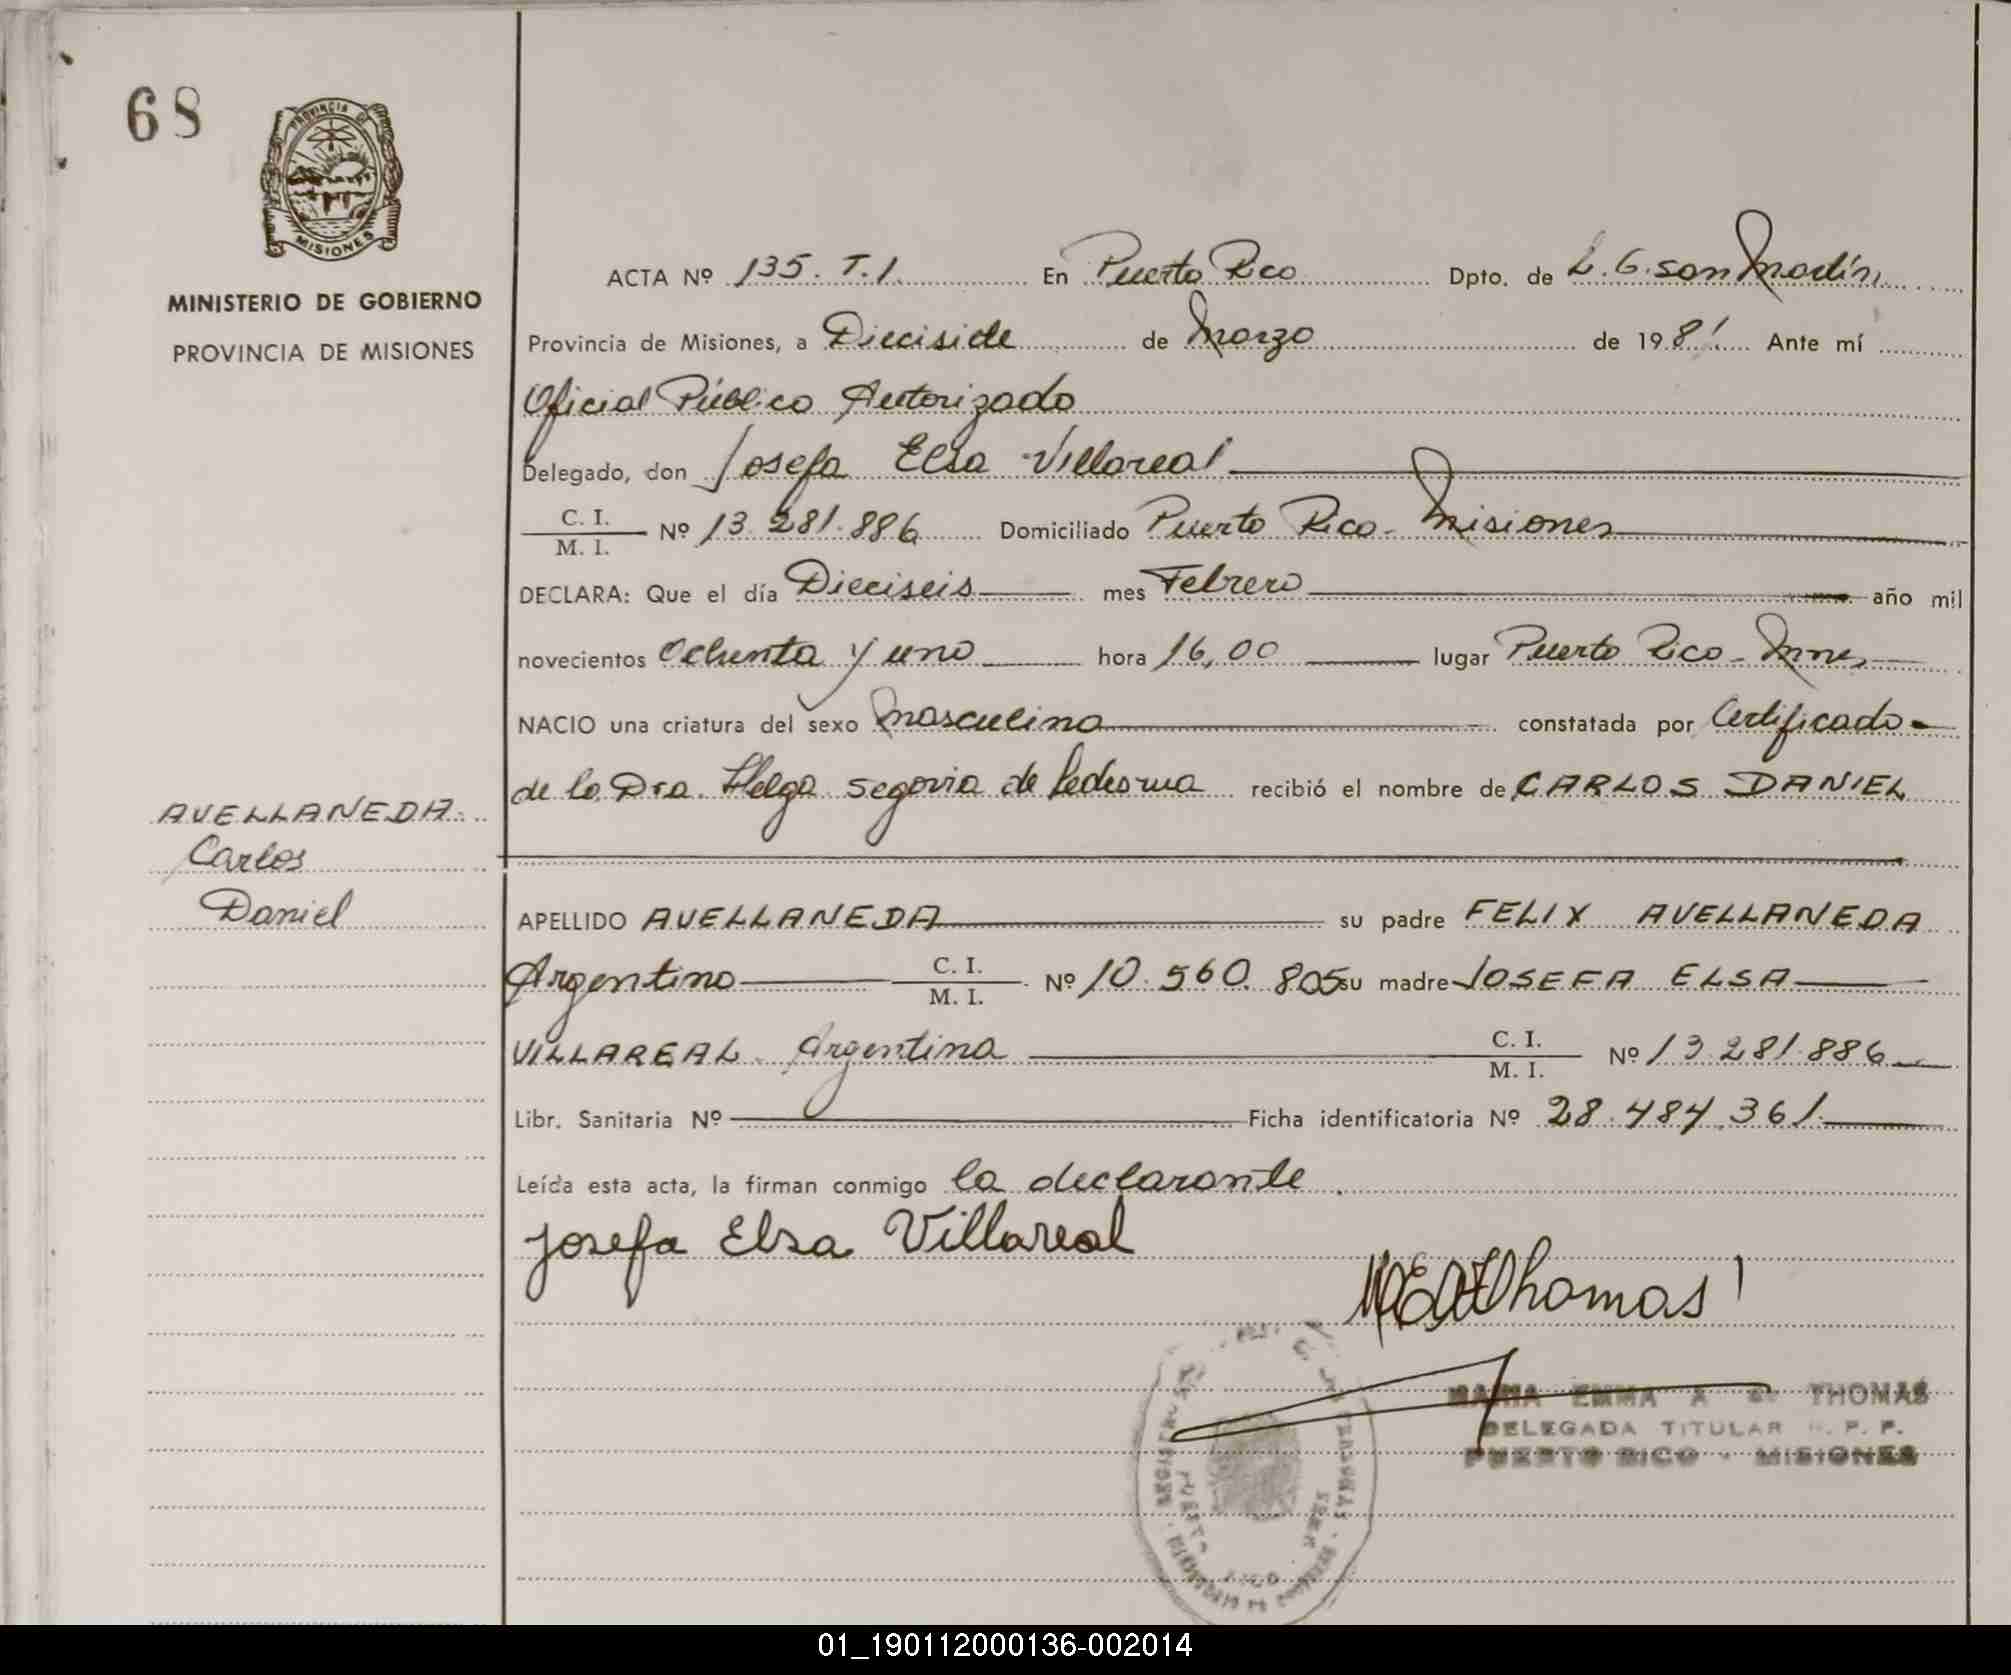 68
PROVINCIA DE
MISIONES
MINISTERIO DE GOBIERNO
PROVINCIA DE MISIONES
ACTA Nº 135. T.1. En Puerto Rico Dpto. de L. G. San Martín
Provincia de Misiones, a Diecisiete de Marzo de 1981 Ante mí
Oficial Público Autorizado
Delegado, don Josefa Elsa Villareal
C. I.
M. I. Nº 13.281.886 Domiciliado Puerto Rico - Misiones
DECLARA: Que el día Dieciseis mes Febrero año mil
novecientos Ochenta y uno hora 16,00 lugar Puerto Rico - Mnes
NACIO una criatura del sexo masculino constatada por Certificado
de la Dra. Helga Segovia de Ledesma recibió el nombre de CARLOS DANIEL
AVELLANEDA
Carlos
Daniel
APELLIDO AVELLANEDA su padre FELIX AVELLANEDA
Argentino C. I.
M. I. Nº 10.560.805 su madre JOSEFA ELSA
VILLAREAL Argentina C. I.
M. I. Nº 13.281.886
Libr. Sanitaria Nº Ficha identificatoria Nº 28.484.361
Leída esta acta, la firman conmigo la declarante
Josefa Elsa Villareal
Thomas
MARIA EMMA A THOMAS
DELEGADA TITULAR P. P.
PUERTO RICO - MISIONES
01_190112000136-002014